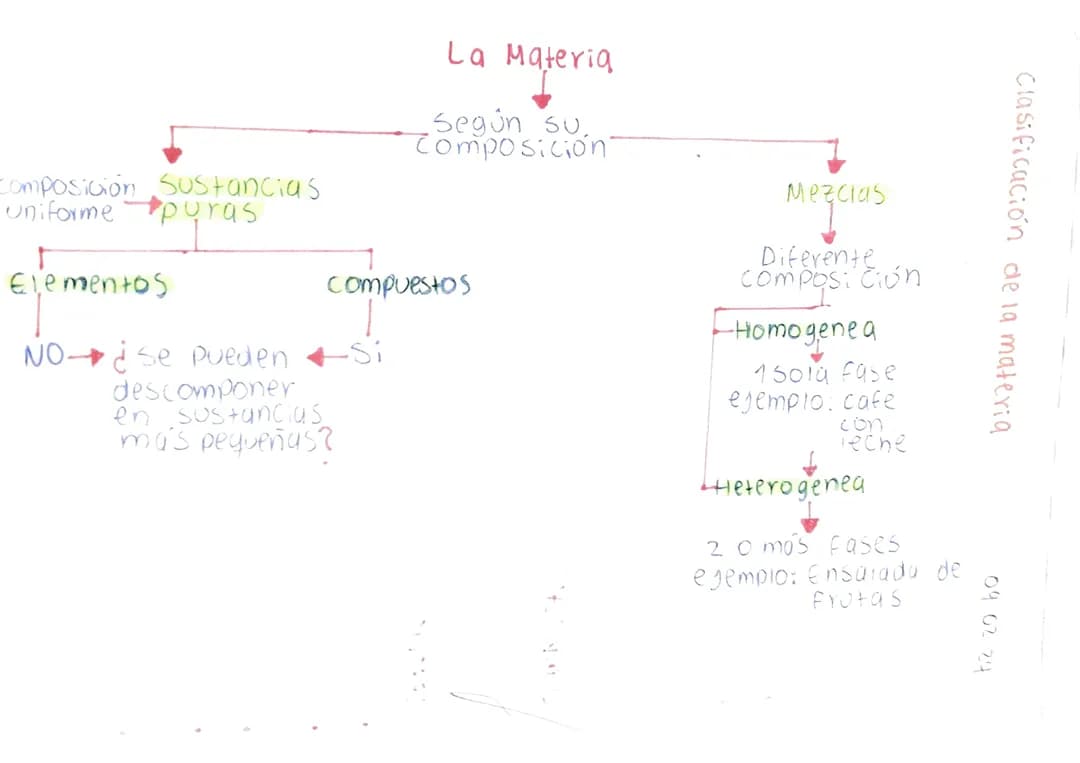 La Materia
Según su
composición
composición
uniforme
Sustancias
puras
Mezclas
Elementos
compuestos
NO
¿ se pueden
descomponer
en sustancias
más pequeñas?
Si
Diferente
composición
Homogenea
1 sola fase
ejemplo: cafe
con
leche
Heterogenea
2 o más fases
ejemplo: Ensalada de
frutas
Clasificación de la materia
09 02 24